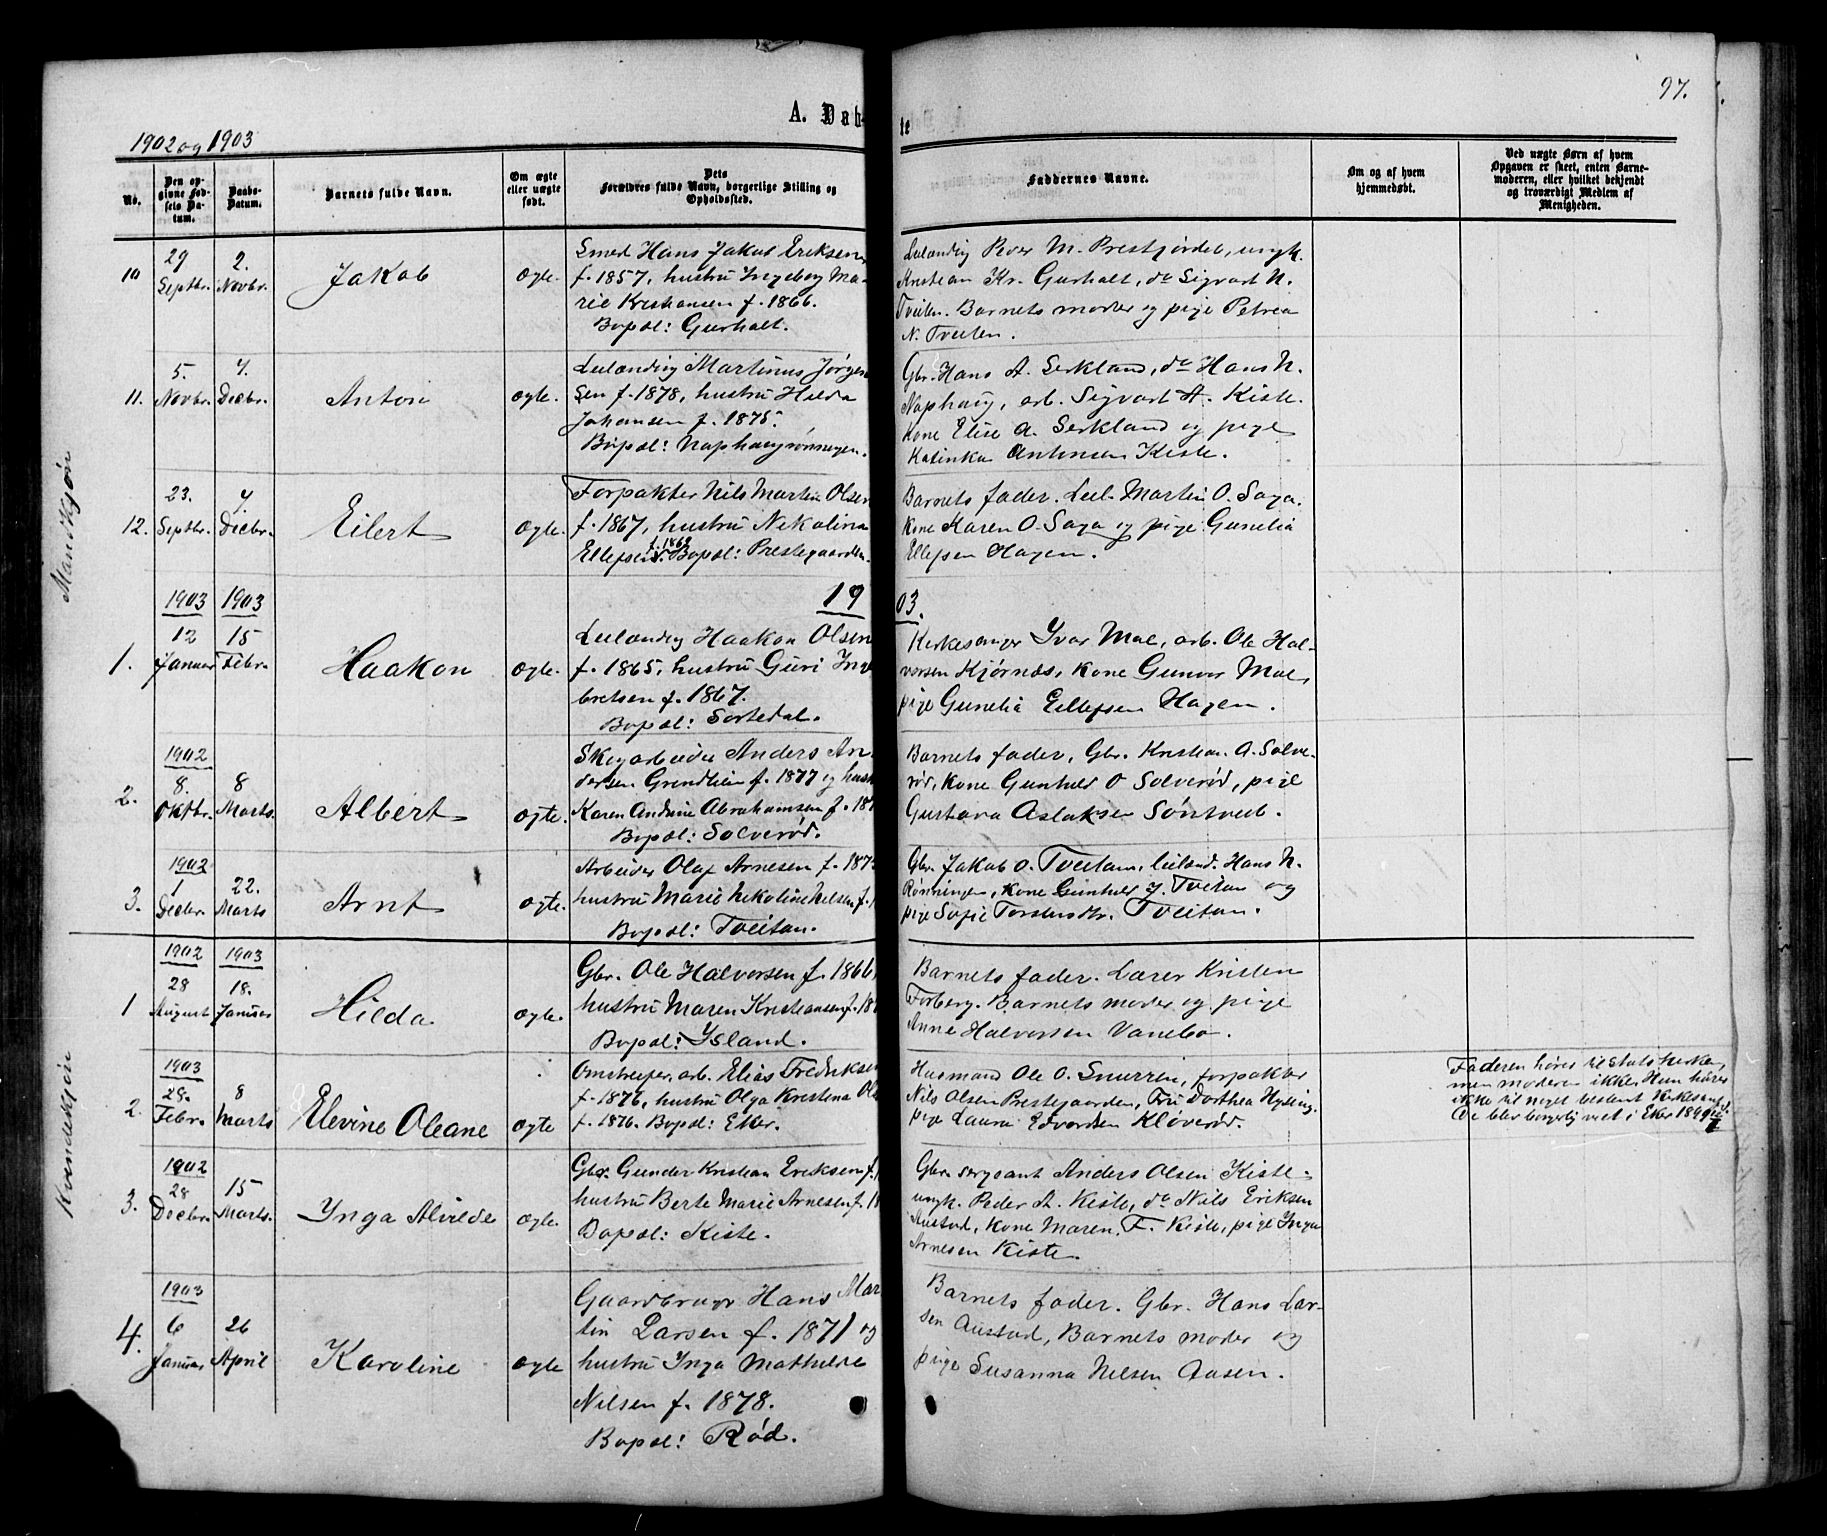 97.
A. Døb-
te
1902 og 1903
No.
Den op-
givne Fød-
sels Da-
tum.
Daabs-
Datum.
Barnets fulde Navn.
Om ægte
eller uægte
født.
Dets
Forældres fulde Navn, borgerlige Stilling og
Opholdssted.
Faddernes Navne.
Om og af hvem
hjemmedøbt.
Ved uægte Børn af hvem
Opgaven er skeet, enten Barne-
moderen, eller hvilket bekjendt
og troværdigt Medlem af
Menigheden.
Mandkjøn
10
29
Septbr.
2.
Novbr.
Jakob
ægte.
Smed Hans Jakob Eriksen
f. 1857, hustru Ingeborg Ma-
rie Kristiansen f. 1866.
Bopæl: Gurholt.
Leilændig Peder M. Prestjordet, ungk.
Kristian Kr. Gurholt, do Sigvart N.
Tveiten. Barnets moder og pige Petrea
N. Tveiten.
11.
5.
Novbr.
7.
Decbr.
Anton
ægte.
Leilændig Martinus Jørgen
sen f. 1878, hustru Hilda
Johansen f. 1875.
Bopæl: Naphaugrønningen.
Gbr. Hans A. Serkland, do Hans N.
Naphaug, arb. Sigvart A. Kiste.
Kone Elise A. Serkland og pige
Katinka Antonsen Kiste.
12.
23.
Septbr.
7.
Decbr.
Eilert
ægte.
Forpakter Nils Martin Olsen
f. 1867, hustru Nekolina
Ellefsen f. 1868. Bopæl: Prestegaarden
Barnets fader. Leil. Martin O. Saga.
Kone Karen O. Saga og pige Gunelia
Ellefsen Hagen.
19
03.
1.
1903
12
Januar
1903
15
Febr.
Haakon
ægte.
Leilændig Haakon Olsen
f. 1865, hustru Guri Inge
bretsen f. 1867.
Bopæl: Sortedal.
Kirkesanger Ivar Mæl, arb. Ole Hal-
vorsen Kjørnæs, kone Gunvor Mæl,
pige Gunelia Ellefsen Hagen.
2.
1902
8.
Oktbr.
8
Marts.
Albert
ægte.
Skogarbeider Anders An-
dersen Grendlien f. 1877 og hust
Karen Andrine Abrahamsen f. 18
Bopæl: Solverød.
Barnets fader, Gbr. Kristian A. Solve-
rød, kone Gunhild O Solverød, pige
Gustava Aslaksen Søntvedt.
3.
1902
1
Decbr.
22.
Marts
Arnt
ægte.
Arbeider Olaf Arnesen f. 187
hustru Marie Nekoline Nilsen f.
Bopæl: Tveitan.
Gbr. Jakob O. Tveitan, leilænd. Hans N.
Rønningen, kone Gunhild J. Tveitan og
pige Sofie Torstensdtr. Tveitan.
Kvindekjøn
1
1902
28
August
1903
18.
Januar
Hilda
ægte.
Gbr. Ole Halvorsen f. 1866
hustru Maren Kristiansen f. 18
Bopæl: Ysland.
Barnets fader. Lærer Kristen
Forberg. Barnets moder og pige
Anne Halvorsen Vanebo.
2.
1903
Febr.
8
Marts
Elevine Oleane
ægte
Omstreifer, arb. Elias Fredriksen
f. 1876, hustru Olga Kristina Ols
f. 1876. Bopæl: Eker.
Husmand Ole O. Snurren, forpakter
Nils Olsen Prestegaarden, Fru Dorthea Hysing,
pige Laura Edvardsen Kløverød.
Faderen hører til Statskirken,
men moderen ikke. Hun hører
ikke til noget bestemt kirkesamf.
De blev borgerlig viet i Eker 1899.
3.
1902
28
Decbr.
15
Marts.
Ynga Alvilde
ægte.
Gbr. Gunder Kristian Eriksen f.
hustru Berte Marie Arnesen f. 18
Bopæl: Kiste.
Gbr. sergeant Anders Olsen Kiste.
ungk. Peder A. Kiste, do Nils Eriksen
Austad, kone Maren F. Kiste, pige Inga
Arnesen Kiste.
4.
1903
6
Januar
26
April
Karoline
ægte
Gaardbruger Hans Mar
tin Larsen f. 1871 og
hustru Ynga Mathilde
Nilsen f. 1878.
Bopæl: Rød.
Barnets fader. Gbr. Hans Lar-
sen Austad, Barnets moder og
pige Susanna Nilsen Aasen.